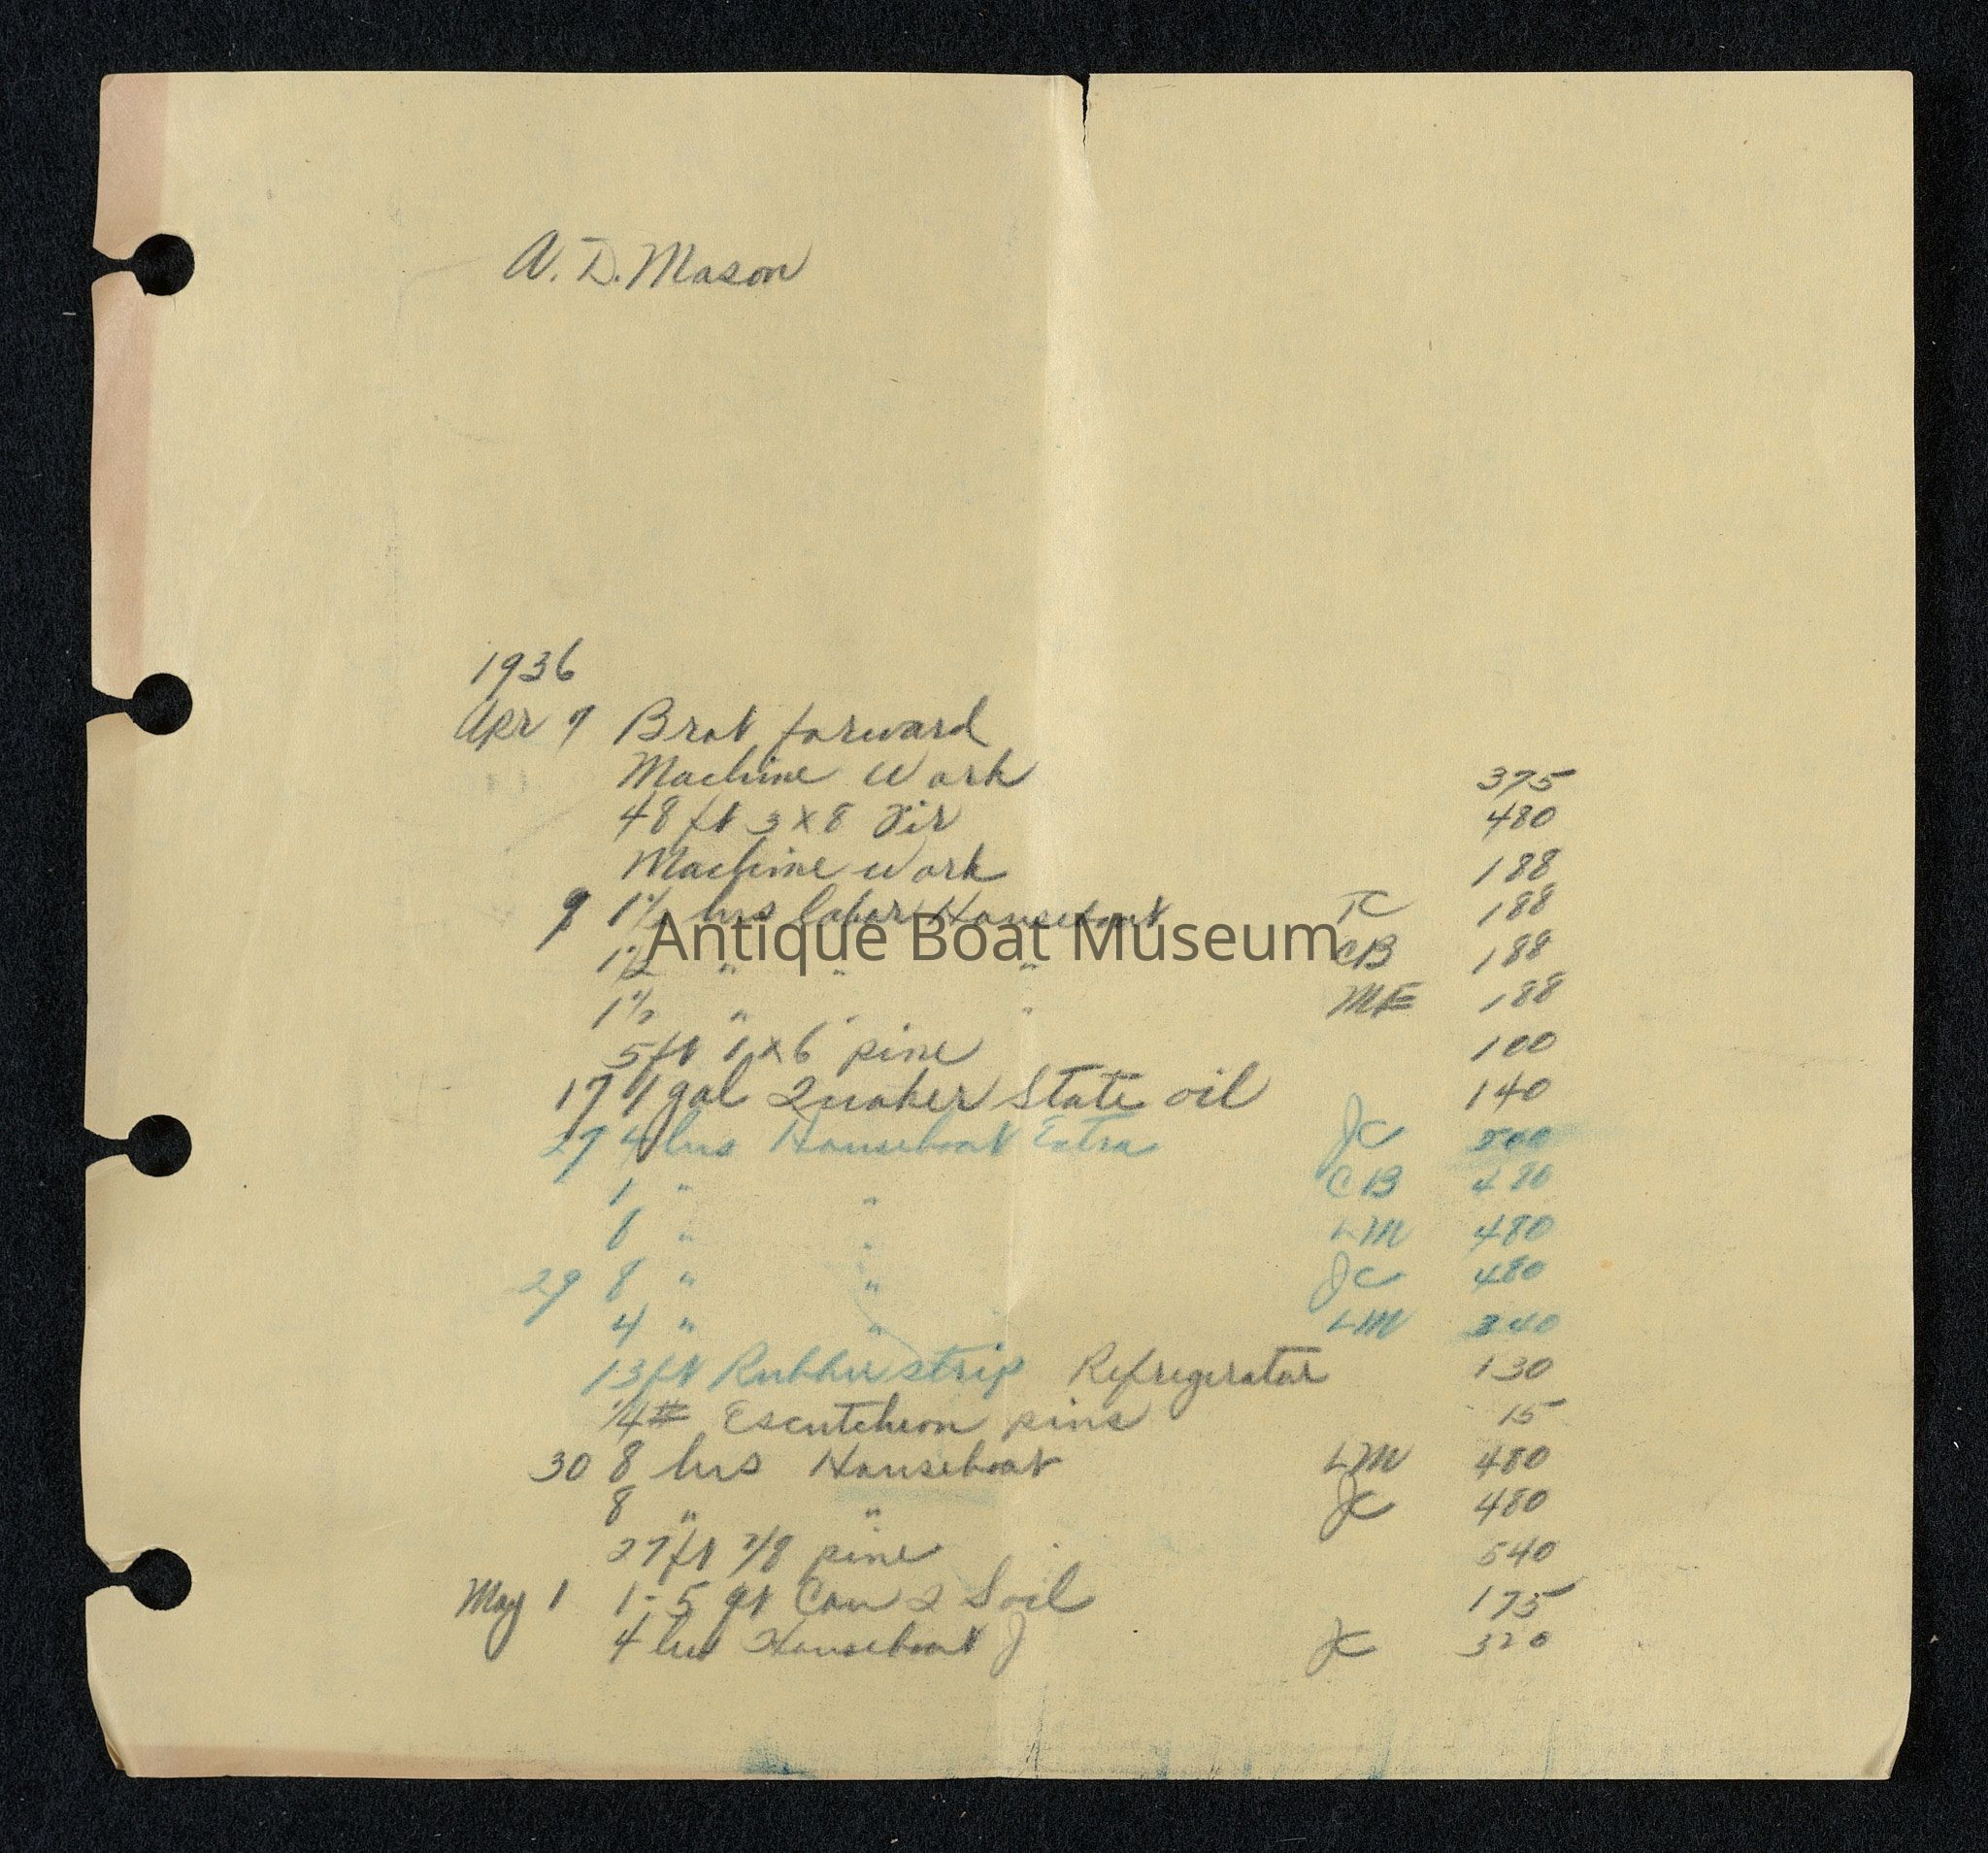 A. D. Mason
1936
Apr 7 Brot forward
Machine Work 375
48 ft 3 x 8 Fir 480
Machine work 188
9 1 1/2 hrs labor Houseboat TC 188
1 1/2 " " " CB 188
1 1/2 " " " MF 188
5 ft 1 x 6 pine 100
17 1 gal Quaker State oil 140
27 4 hrs Houseboat Extra JC
" " CB 480
" " LM 480
29 8 " " JC 480
4 " " LM 240
13 ft Rubber strip Refrigerator 130
1/4 # Escutcheon pins 15
30 8 hrs Houseboat LM 480
8 " " JC 480
27 ft 7/8 pine 540
May 1 1- 5 qt Can 2 S oil 175
4 hrs Houseboat J JC 320
Antique Boat Museum